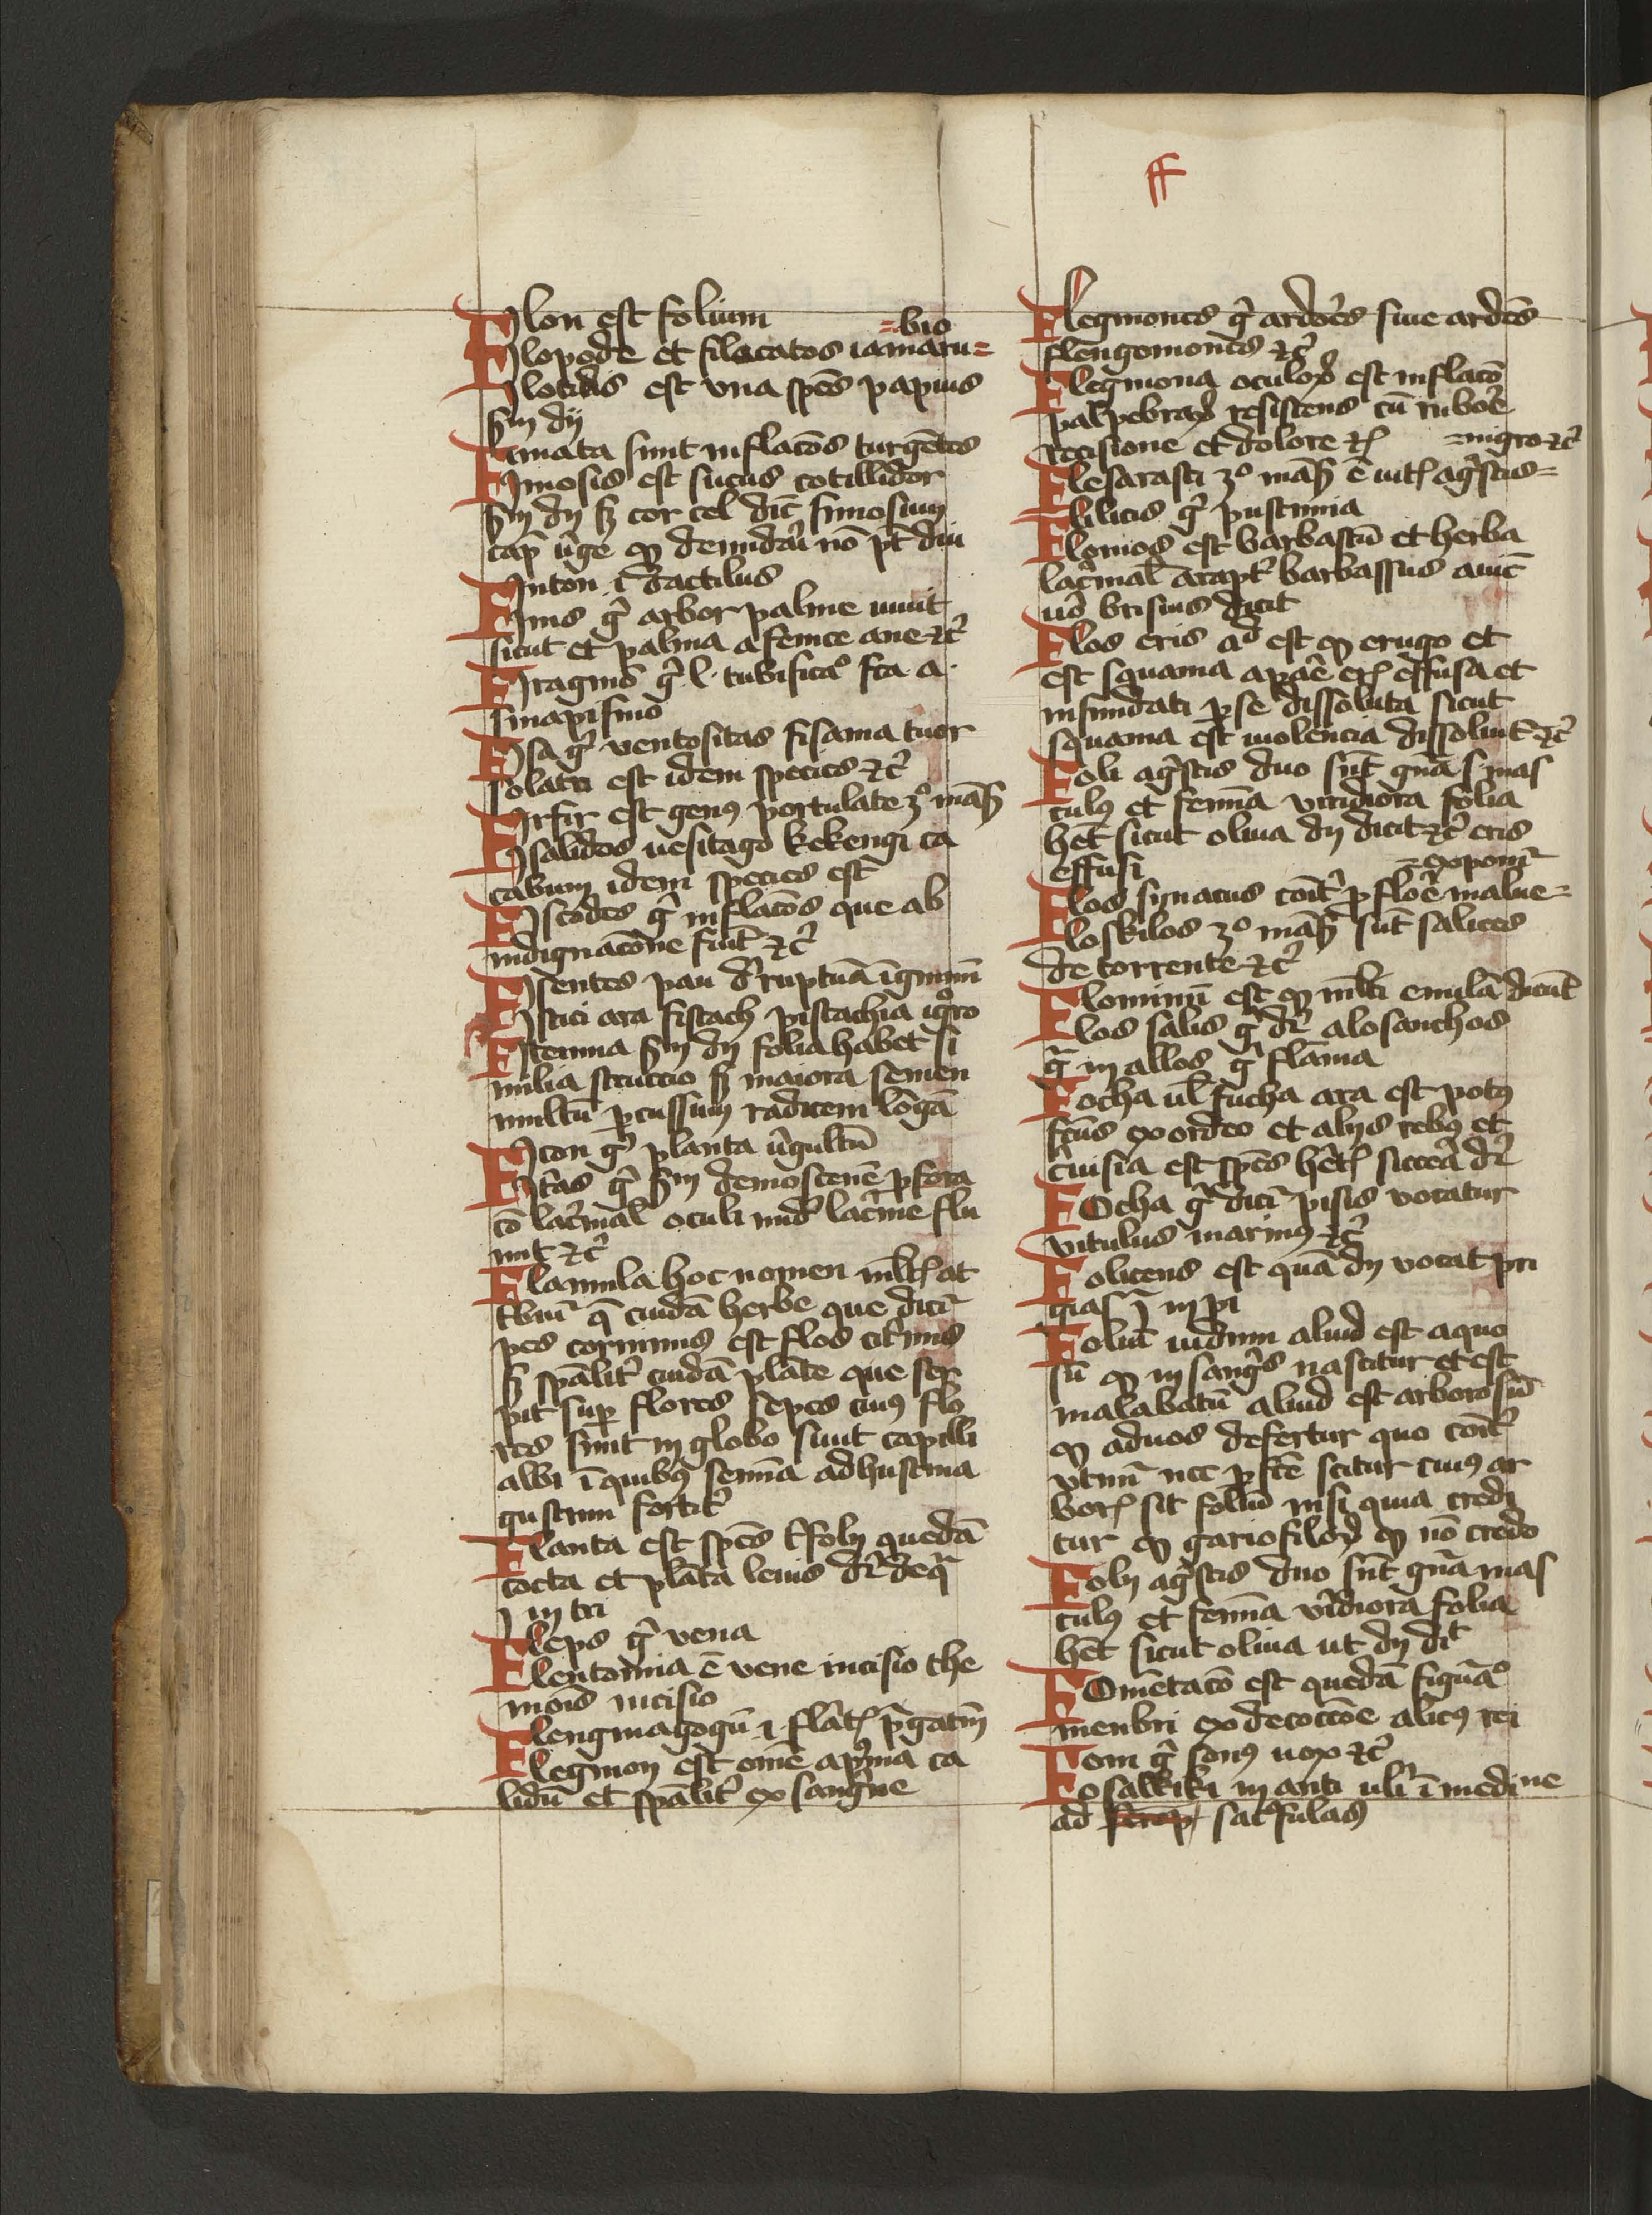 ff
FIlon est folium
=bio
FIlopode et filocatos iamaru=
FIlotidis est vna sp̄es papius
sm dy
Fimata sunt inflacōs turgētes
FImosis est sucus cotillidor
sm dy sz cor cel dic̄ fimosum
cap̄ v̓ge ꝙ denudari nō pt̄ diu
FInton .i. dactilus
FInis gͥ arbor palme
sicut et palma a fenice aue ⁊c̓
FIragmō gͥ l. tubificaͦ fca a
sinapismo
FIsa gͥ ventositas fisama tuor
solatri est idem species ⁊c̓
FIrfir est genꝰ portulate
FIsalidos uesitago kekengi ca
cabum idem species est
FIscodes gͥ inflacōs que ab
indignacōne fiūt ⁊c̓
FIsentes pau dr̄ ruptuā īgminū
FIstici ara fistach pistachia
FItemna sm dy folia habet si
milia structio sz maiora semen
multū ꝑcussum radicem lōgā
FIcon gͥ planta v̓gultū
FItas gͥ sm demostenē ꝑfora
cō lac̓mal oculi lac̓me flu
unt ⁊c̓
Flamula hoc nomen
tbuit̄ cuidā herbe que dicit̄
pes coruinus est flos citͥnus
sz spālit̓ cuidā plāte que ser
pit sup̄ flores sepes cuiꝰ flo
res sunt in globo sicut capilli
albi ī quibꝰ semīa adhuc
gustum fortit̓
Flanta est sp̄es t̓folij quedā
cocta et plāta leuis dr̄ de qͣ
ꝫ in tri
Fleps gͥ vena
Flentomia ē vene incisio the
mois incisio
Flengmagogū .i. flāt̄ p̄gatiū
Flegmon est omē apͥma ca
lidū et spālit̓ ex sanguine
Flegmones gͥ ardōes siue ardēs
flengomones ⁊c̓
Flegmona oculoꝝ est inflacō
palpebraꝝ resistens cū rubōe
recisione et dolore ⁊c̓
=nigro ⁊c̓
Flesarasti ē agͥstis=
Flilicis gͥ pustnnia
Flomos est barbastū et herba
lac̓mal arapt̓ barbassus auic̄
uō brisius dicit
Flos eris aͩ est ꝙ erugo et
est squama effusa et
infundati ꝑ se dissoluta sicut
squama est uiolencia dissoluit̄ ⁊c̓
Foli agͥstis duo sūt gn̄a s mas
culꝰ et femīa viridiora folia
hēt sicut oliua dy dicit ⁊c̓ eris
effusi
=exponit̄
Flos siriacus cōit̓ ꝑ floē malue=
Floskilos sūt salices
de torrente ⁊c̓
Flominū est ꝙ ml̄ti enulā dicūt
Flos salis gͥ dr̄ alosanchos
gͣ in allos gͥ flāma
Focha ul̄ fucha ara est potꝰ
fcus ex ordeo et alijs rebꝰ et
c̓uisia est sp̄es siccea dr̄
FOcha gͥ dicit̄ pisis vocatur
vitulus marinꝰ ⁊c̓
Folicens est quā dy vocat pri
gias ꝫ in pi
Foliū indum aliud est aquo
sū ꝙ in sangͥs nascitur et est
malabatū aliud est arborosū
ꝙ ad uos defertur quo cōit̓
vtimur nec ꝑfcē scitur cuiꝰ ar
boris sit foliū nisi quia credi
tur ꝙ gariofiloꝝ ꝙ nō credo
Foly agͥstis duo sūt gn̄a mas
culꝰ et femīa v̓idiora folia
hēt sicut oliua ut dy dic̄
FOmētacō est quedā figuāͦ
menbri ex decoccōe alicꝰ rei
Fom gͥ sonꝰ uox ⁊c̓
Fosalkiki in anti ubi ī medine
ad sat fulas